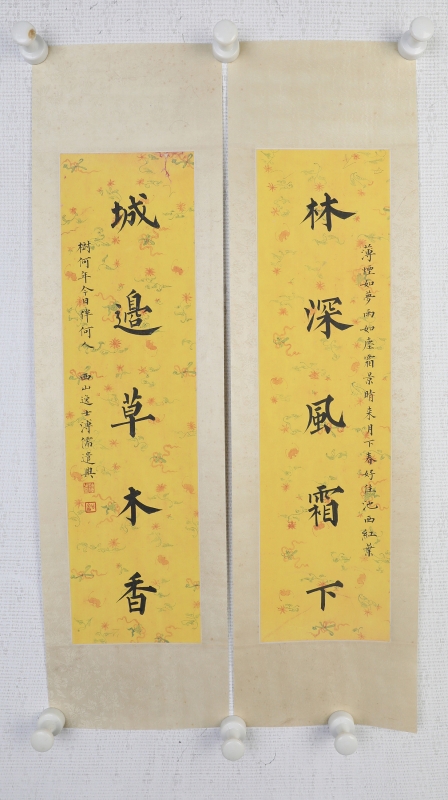 林深風霜下
薄煙如夢雨如塵霜景晴来月下春好住池西紅葉
城邊草木香
樹何年今日伴何人 西山逸士溥儒遣興